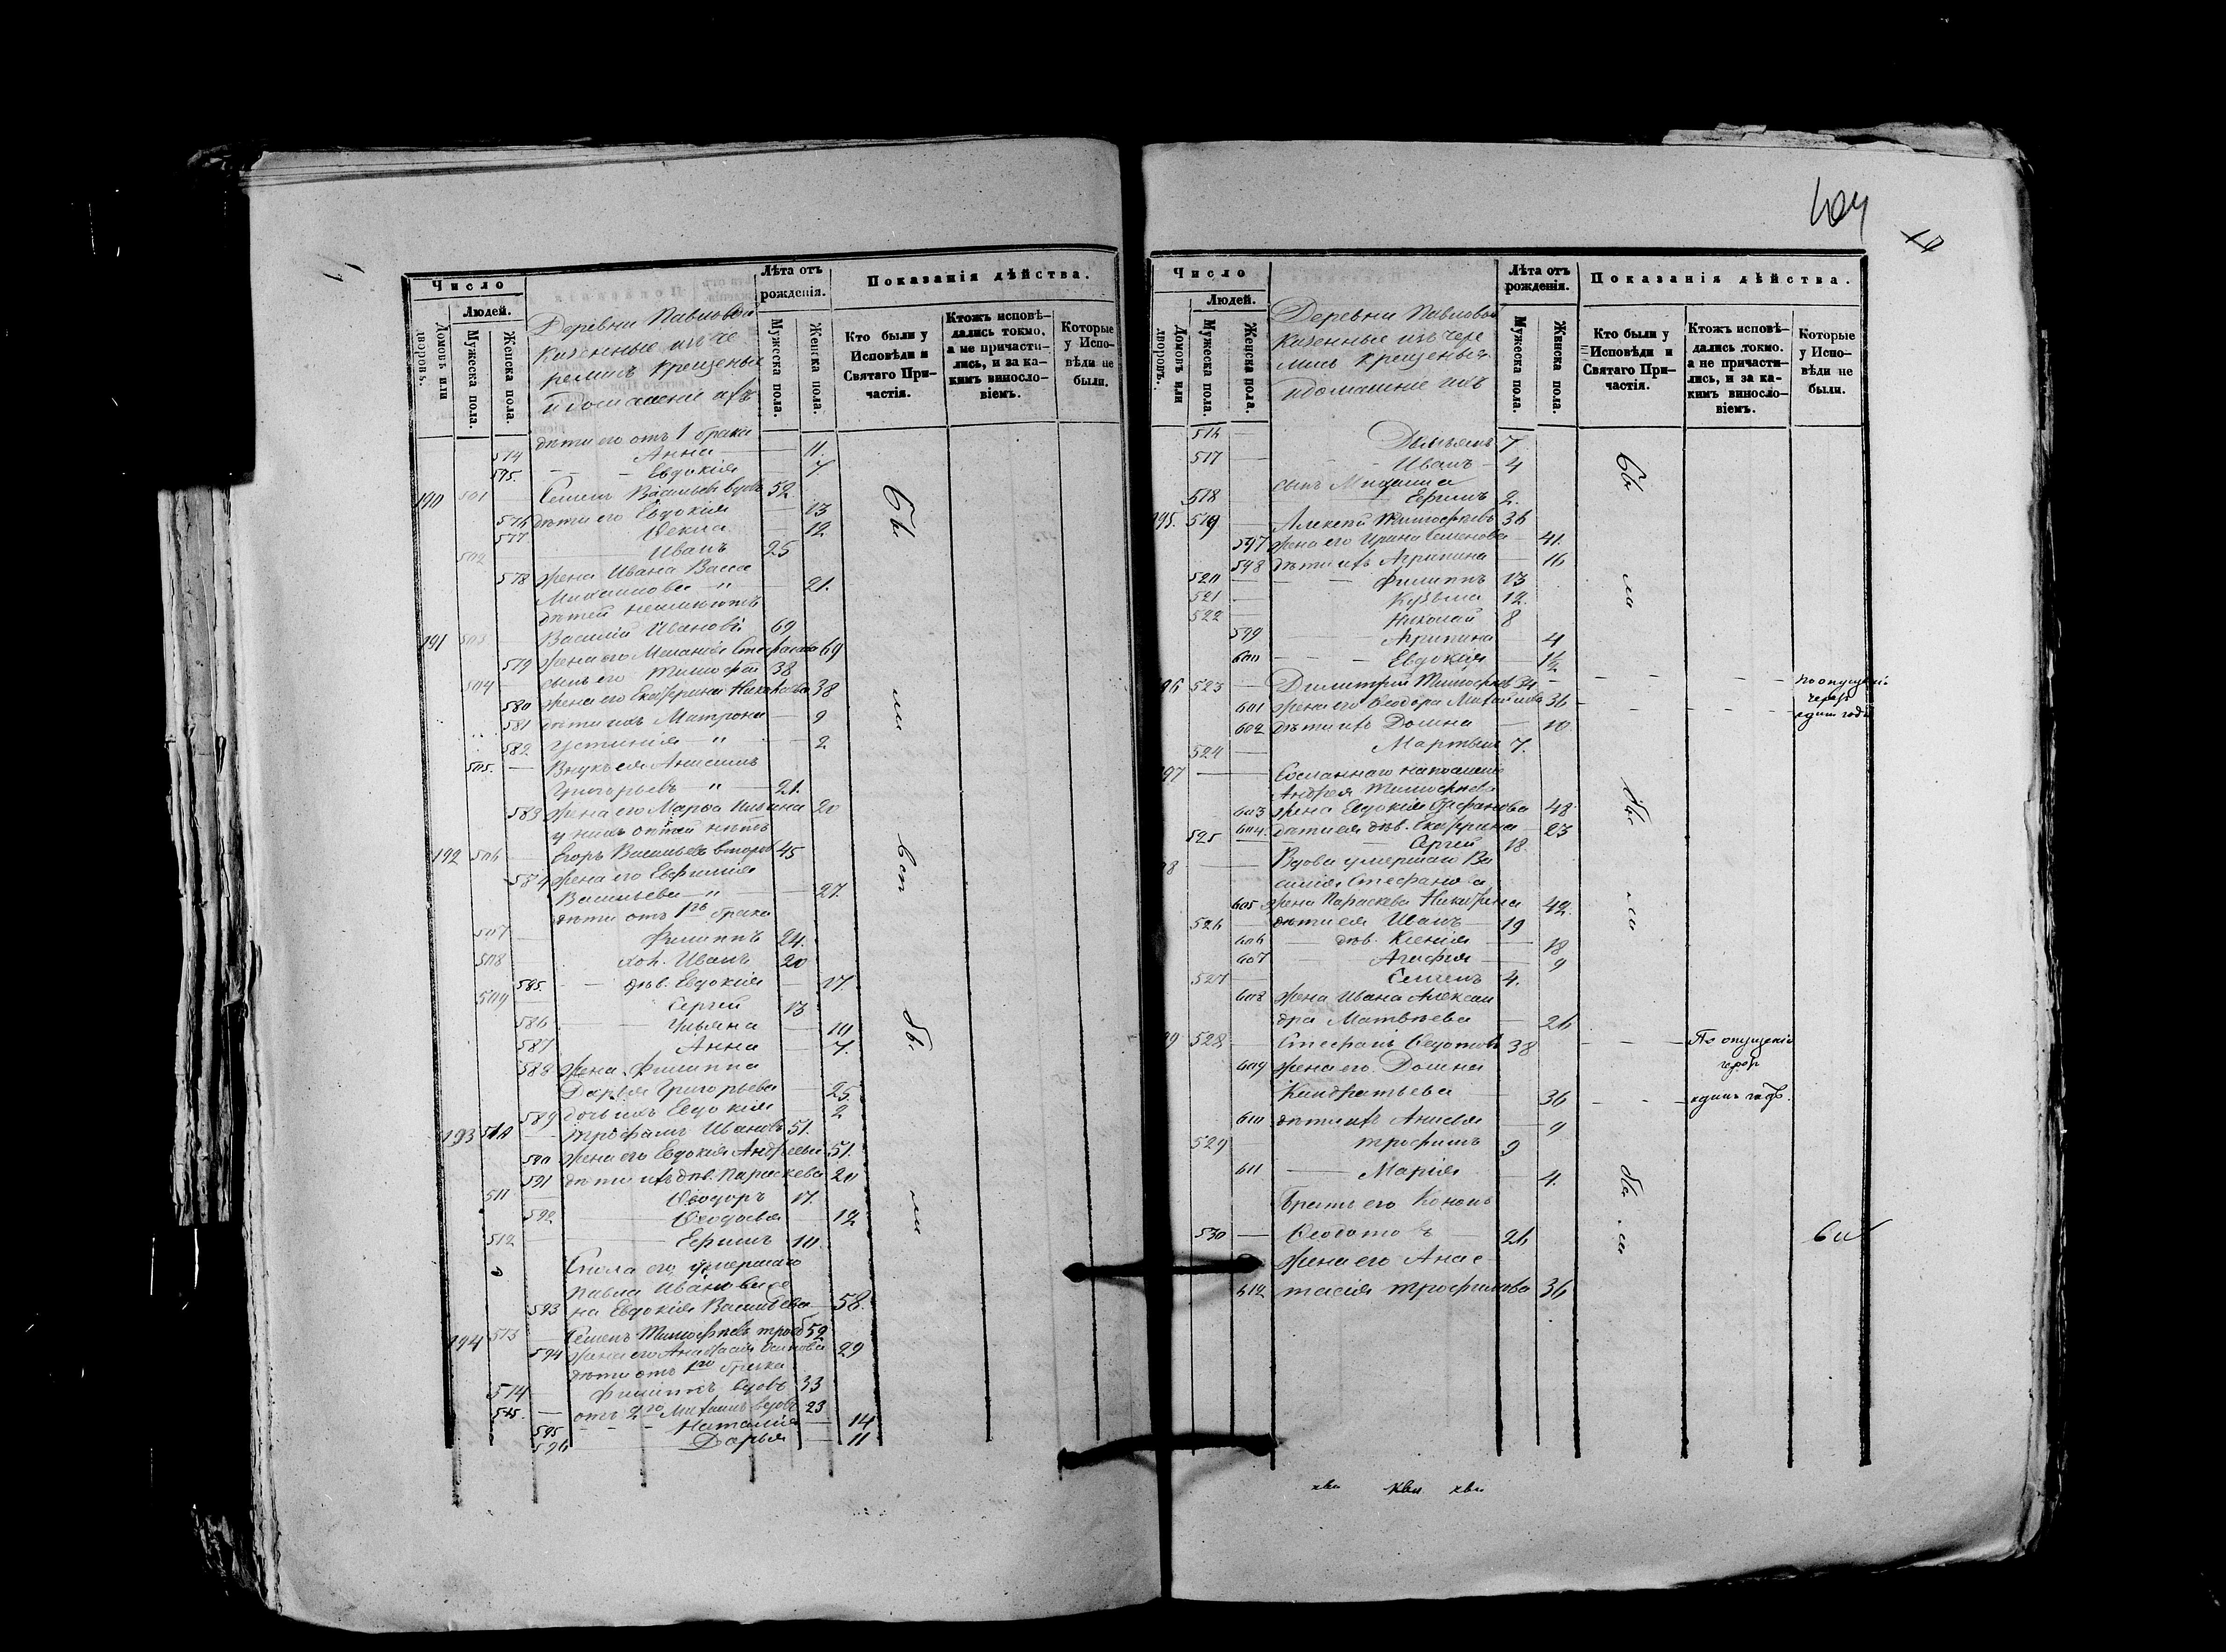 Число
Людей.
Домовъ или дворовъ.
Мужеска пола.
Женска пола.
Деревни Павловой
казенные изъ че
ремисъ крещеные
и домашние ихъ
Лѣта отъ
рожденія.
Мужеска пола.
Женска пола.
Показанія дѣйства.
Кто были у
Исповѣди и
Святаго При-
частія.
Ктожъ исповѣ-
дались токмо,
а не причасти-
лись, и за ка-
кимъ винosло-
віемъ.
Которые
у Испо-
вѣди не
были.
дѣти его отъ 1 брака
574 Анна 11.
575. Евдокія 7
190 501 Семенъ Васильевъ вдовъ 52
576 дѣти его Евдокія 13
577 Ѳекла 12
502 Иванъ 25
578 жена Ивана Васса
Михаилова " 21.
дѣтей неимѣютъ
191 503 Василій Ивановъ 69
579 жена его Меланія Стефанова 69
504 сынъ его Тимофей 38
580 жена его Екатерина 38
581 дѣти ихъ Матрона 9
582 Устинія " 2
505. Внукъ ея Анисимъ
Григорьевъ " 21.
583 жена его Марѳа Ильина 20
у нихъ дѣтей нѣтъ
192 506 Егоръ Васильевъ второб 45
584 жена его Евфимія
Васильева " 27.
дѣти отъ 1го брака
507 Филиппъ 24.
508 хол. Иванъ 20
585. дѣв. Евдокія 17.
509 Сергѣй 13
586 Ульяна 10
587 Анна 7.
588 жена Филиппа
Дарья Григорьева 25.
589 дочь ихъ Евдокія 2
193 510 Трофимъ Ивановъ 51.
590 жена его Евдокія Андреева 51.
591 дѣти ихъ дѣв. Параскева 20
511 Ѳеодоръ 17.
592 Ѳеодосья 12
512 Ефимъ 10.
умершаго
Павла Иванова же
593 на Евдокія Васильева 58.
194 513 Семенъ Тимофѣевъ троеб 52
594 жена его Анастасія Осипова 29
дѣти отъ 1го брака
514 Филиппъ вдовъ 33
515. отъ 2го Михаилъ вдовъ 23
595 Наталія 14
596 Дарья 11
бы
ли
всп
бы
ли
Число
Людей.
Домовъ или дворовъ.
Мужеска пола.
Женска пола.
Деревни Павловой
казенные изъ чере
мисъ крещеные
и домашние ихъ
Лѣта отъ
рожденія.
Мужеска пола.
Жинска пола.
Показанія дѣйства.
Кто были у
Исповѣди и
Святаго При-
частія.
Ктожъ исповѣ-
дались токмо.
а не причасти-
лись, и за ка-
кимъ винosло-
віемъ.
Которые
у Испо-
вѣди не
были.
516 Демьянъ 7
517 Иванъ 4
сынъ Михаила
518 Ефимъ 2.
195. 519 Алексѣй Тимофѣевъ 36
597 жена его Ирина Семенова 41.
598 дѣти ихъ Агрипина 16
520 Филиппъ 13
521 Кузьма 12.
522 Николай 8
599 Агрипина 4
600 Евдокія 1½
196 523 Димитрій Тимофѣевъ 34 По опущенію
601 жена его Ѳеодора Михайлова 36 чрезъ
602 дѣти ихъ Домна 10 одинъ годъ
524 Мартынъ 7.
197 Сосланнаго на поселеніе
Андрея Тимофѣева
603 жена Евдокія Стефанова 48
604. дѣти ея дѣв. Екатерина 23
525 Сергѣй 18
198 Вдова умершаго Ва
силія Стефанова
605 жена Параскева Никитина 42
526 дѣти ея Иванъ 19
606 дѣв. Ксенія 18
607 Агафья 9
527 Семенъ 4.
608 жена Ивана Алексан
дра Матвѣева 26
199 528 Стефанъ Ѳедотовъ 38 По опущенію
609 жена его Домна чрезъ
Кондратьева 36 одинъ годъ.
610 дѣти ихъ Анисья 9
529 Трофимъ 9
611 Марія 4.
Братъ его Кононъ
530 Ѳеодотовъ 26
жена его Анас-
612 тасія Трофимова 36
бы
ли
бы
ли
бы
ли